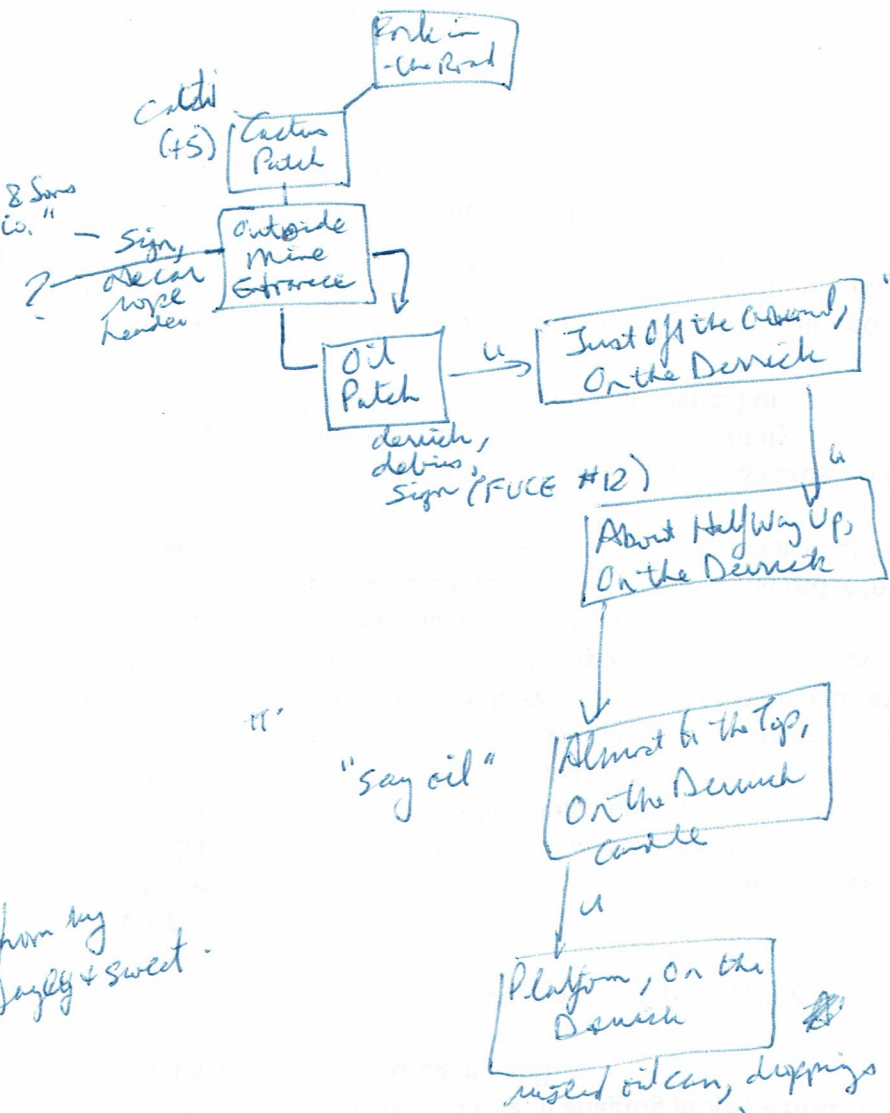 Fork in
-the Road
Cacti
(+5)
Cactus
Patch
& Sons
Co."
- Sign,
rope
header
?
Outside
Mine
Entrance
Oil
Patch
u
Just Off the Ground,
On the Derrick
derrick,
debris,
Sign (FUCE #12)
u
About Half Way Up,
On the Derrick
"say oil"
Almost to the Top,
On the Derrick
candle
u
from my
& sweet.
Platform, On the
Derrick
rusted oil can, droppings